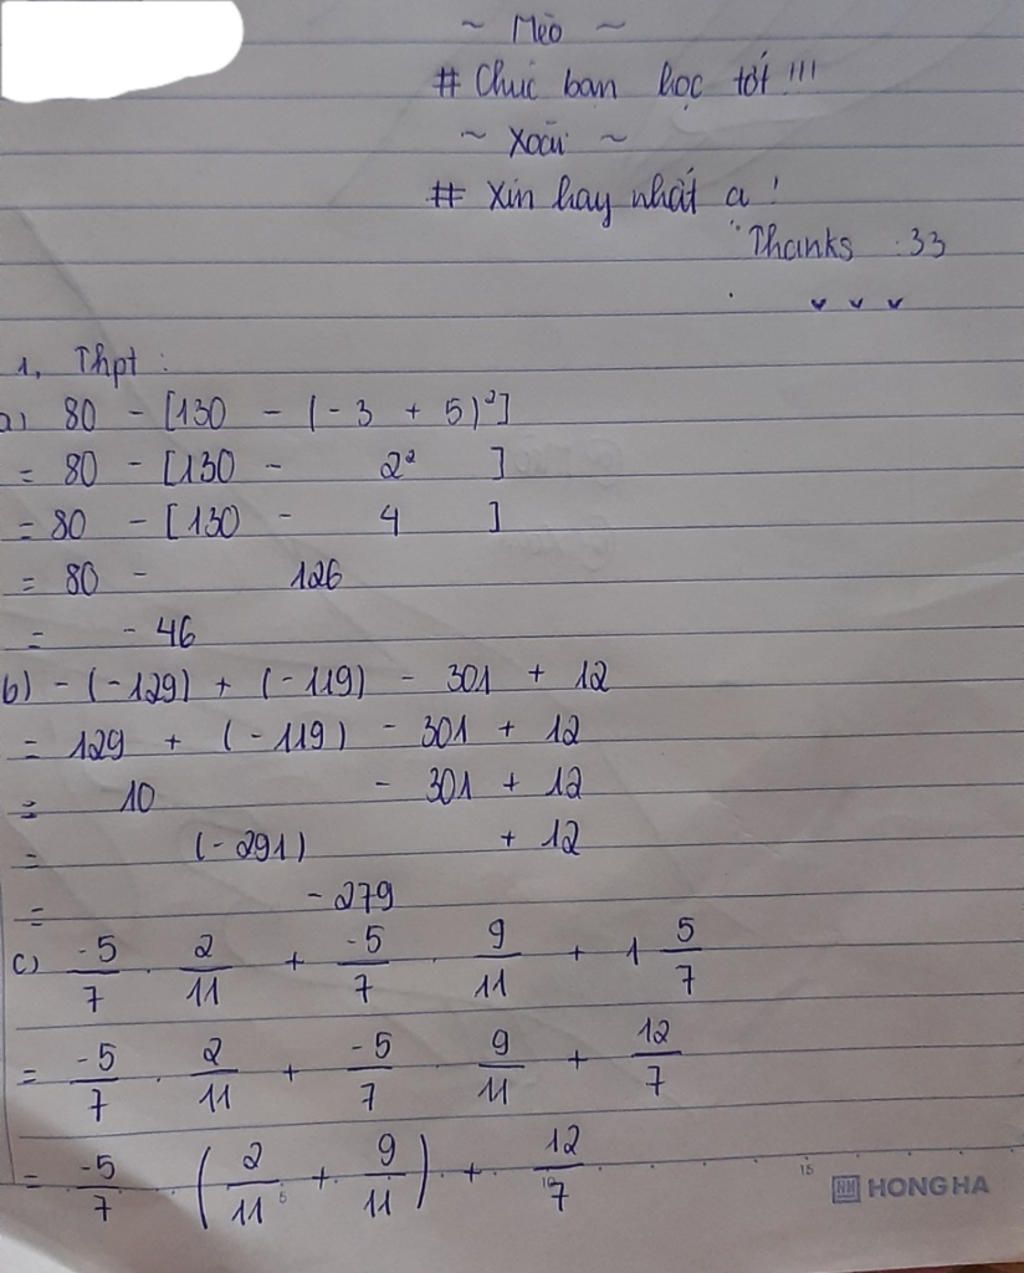 ~ Mèo ~
# Chúc bạn học tốt !!!
~ Xoài ~
# Xin hay nhất ạ !
Thanks :33
1, Thpt :
a) 80 - [130 - (-3 + 5)²]
= 80 - [130 - 2² ]
= 80 - [130 - 4 ]
= 80 - 126
= - 46
b) - (-129) + (-119) - 301 + 12
= 129 + (-119) - 301 + 12
= 10 - 301 + 12
= (-291) + 12
= -279
c) -5/7 . 2/11 + -5/7 . 9/11 + 1 5/7
= -5/7 . 2/11 + -5/7 . 9/11 + 12/7
= -5/7 . (2/11 + 9/11) + 12/7
5 10 15
HONG HA